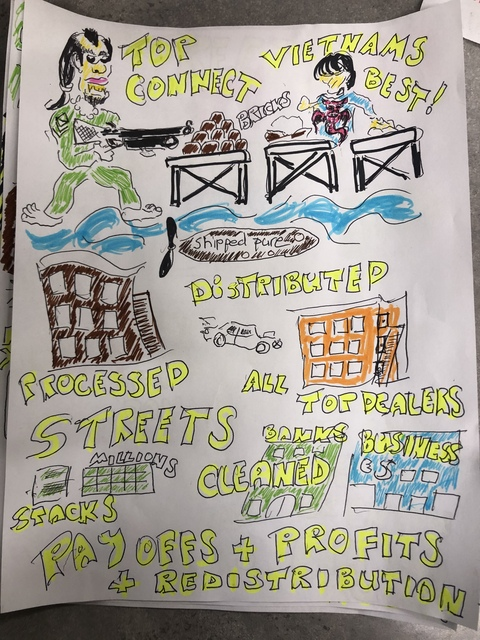 TOP VIETNAMS
CONNECT BEST!
BRICKS
shipped pure
DISTRIBUTED
PROCESSED ALL
TOP DEALERS
STREETS
BANKS BUSINESS
ES
MILLIONS
CLEANED
STACKS
PAY OFFS + PROFITS
+ REDISTRIBUTION